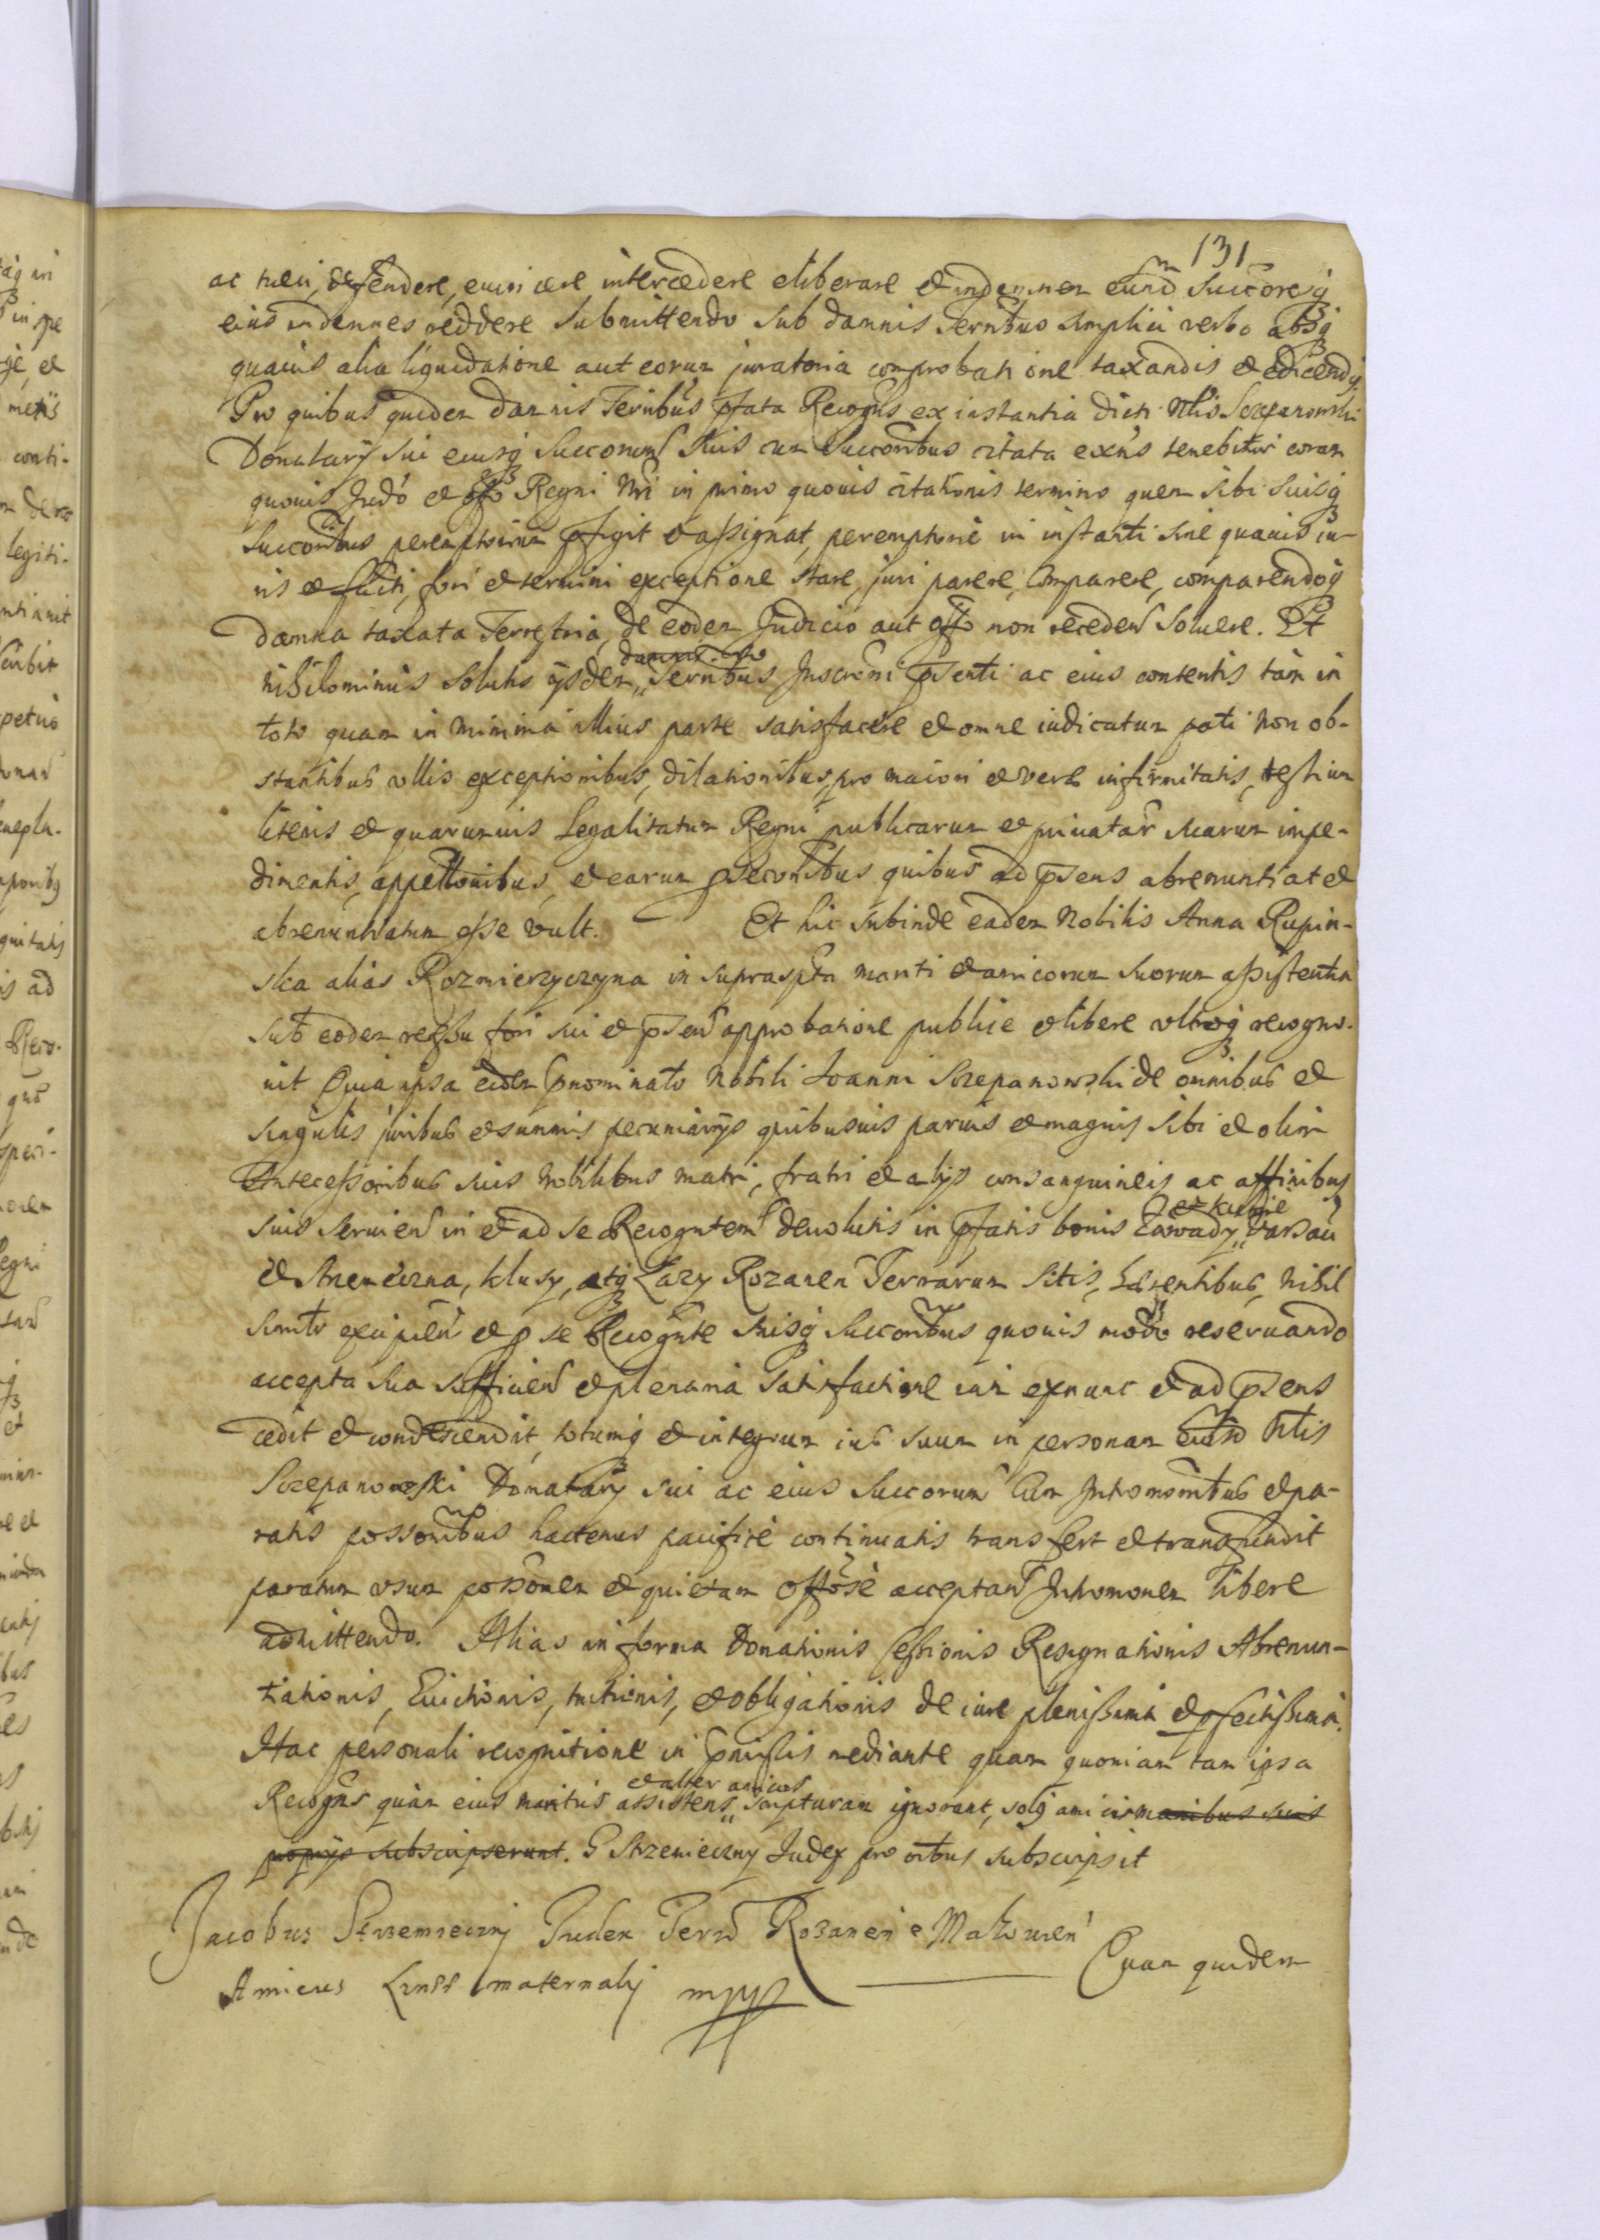 131
ac tueri, defendere, euincere intercedere eliberare et indemnem eund Succoresq
eius indennes reddere Submittendo Sub damnis Terribus simplici verbo absq
quauis alia liquidatione aut eorum juratoria comprobatione taxandis et edicendis
Pro quibus quidem damnis Terribus pfata Recogns ex instantia dicti Nblis Sczepanowski
Donatarij sui eiusq Succorum suis cum Succoribus citata exns tenebitur coram
quouis Judo et offo Regni Nri in primo quouis citationis termino quem sibi suisq
Succoribus peremptorium pfigit et assignat, peremptorie in instanti sine quauis iu-
ris et facti, fori et termini exceptione stare, juri parere, comparere, comparendoq
damna taxata Terrestria, de eodem Judicio aut offo non receden soluere. Et
nihilominus solutis ijsdem damnis Terribus Inscroni psenti ac eius contentis tam in
toto quam in minima illius parte satisfacere et omne iudicatum pati non ob-
stantibus vllis exceptionibus, dilationibus, pro maiori et vera infirmitatis, testium
literis et quarumuis Legalitatum Regni publicarum et priuatar suarum impe-
dimentis, appellonibus, et earum psecuonibus quibus ad psens abrenuntiat et
abrenuntiatum esse vult. Et hic subinde eadem Nobilis Anna Rupin-
ska alias Rozmierzyczyna in suprascpta mariti et amicorum suorum assistentia
sub eodem recessu fori sui et psen approbatione publice et libere vltroq recogno-
uit Quia ipsa eidem pnominato Nobili Joanni Sczepanowski de omnibus et
singulis juribus et summis pecuniarijs quibusuis paruis et magnis sibi et olim
Antecessoribus suis Nobilibus matri, fratri et alijs consanguineis ac affinibus
suis seruien in et ad se Recogntem deuolutis in pfatis bonis Zawady et Kurpie Varsau
et Strzemieczna, Klusy, atq Lazy Rozanen Terrarum sitis, habentibus, Nihil
Juris excipien et p se Recognte suisq Succoribus quouis modo reseruando
accepta sua sufficien et plenaria satisfactione iam exnunc et ad psens
cedit et condescendit, totumq et integrum ius suum in personam eiusd Nblis
Sczepanowski Donatarij sui ac eius Succorum cum Intromonibus et pa-
ratis possonibus hactenus pacifice continuatis transfert et transfundit
paratum vsum possonem et quietam offose acceptan Intromonem libere
admittendo. Alias in forma Donationis Cessionis Resignationis Abrenun-
tiationis, Euictionis, tuitionis, et obligationis de iure plenissima et pfectissima.
Hac personali recognitione in pmissis mediante quam quoniam tam ipsa
Recogns quam eius maritus assistens et alter amicus scripturam ignorant, solq amicis manibus suis
proprijs subscripserunt. G Strzemieczny Judex pro oibus subscripsit
Jacobus Strzemieczny Judex Terrs Rozanen e Makouien
Amicus Lines maternalis mpp
Quam quidem